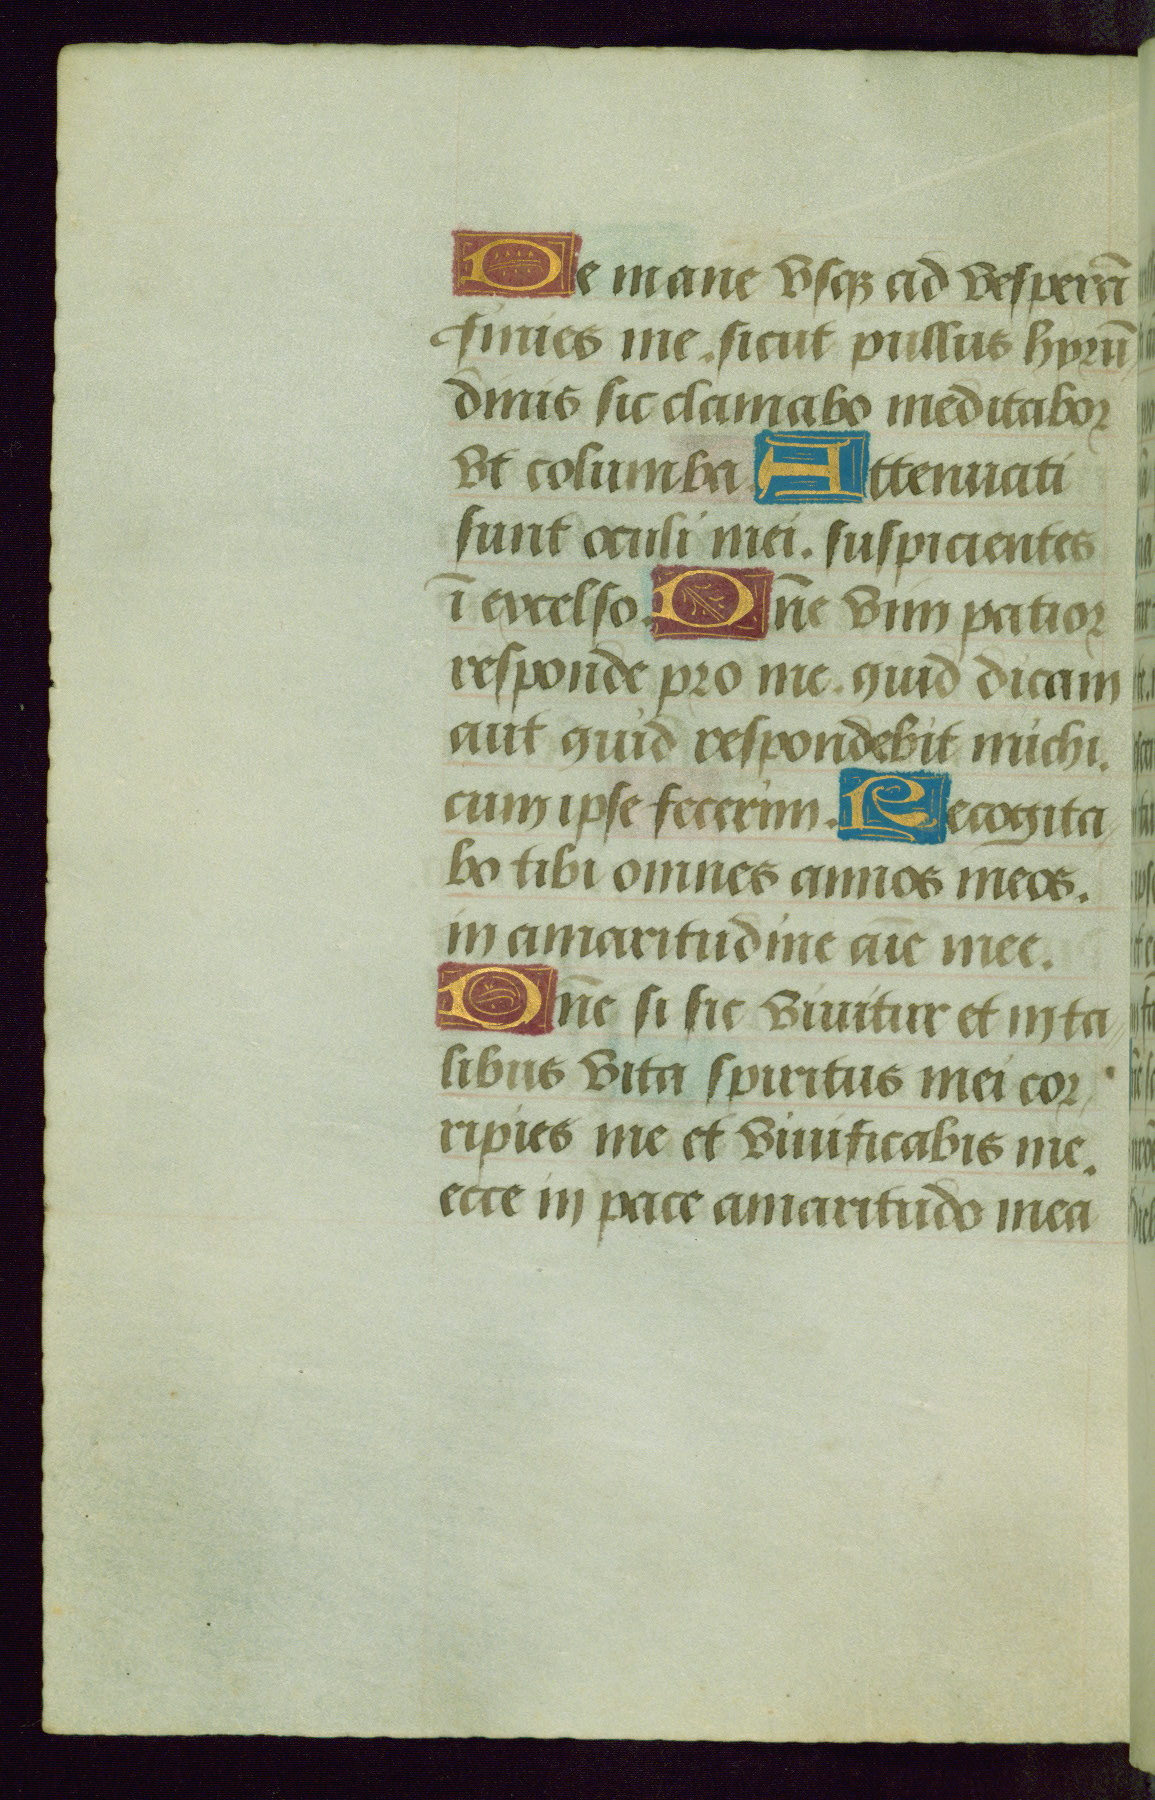 De mane vsqꝫ ad vesperā
finies me. sicut pullus hyrū
dinis sic clamabo meditabor
vt columba. Attenuati
sunt oculi mei. suspicientes
ī excelso. Dn̄e vim patior
responde pro me. quid dicam
aut quid respondebit michi.
cum ipse fecerim. Recogita
bo tibi omnes annos meos.
in amaritudine aīe mee.
Dn̄e si sic viuitur et in ta
libus vita spiritus mei cor
ripies me et viuificabis me.
ecce in pace amaritudo mea